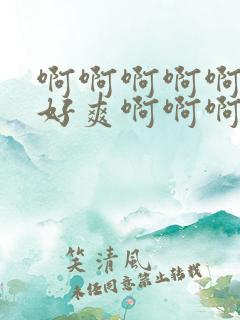 啊啊啊啊啊
好爽啊啊啊
笑清風
未经同意禁止转载